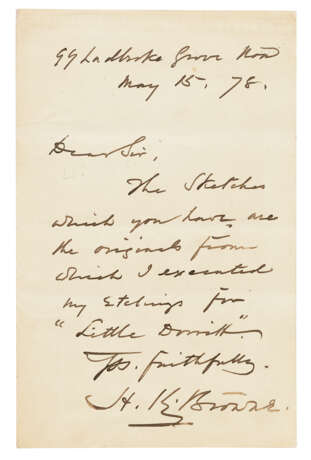 99 Ladbroke Grove Road
May 15. 78.
Dear Sir,
The Sketches
which you have, are
the originals from
which I executed
my etchings for
"Little Dorrit".
Yrs. faithfully.
H. K. Browne.